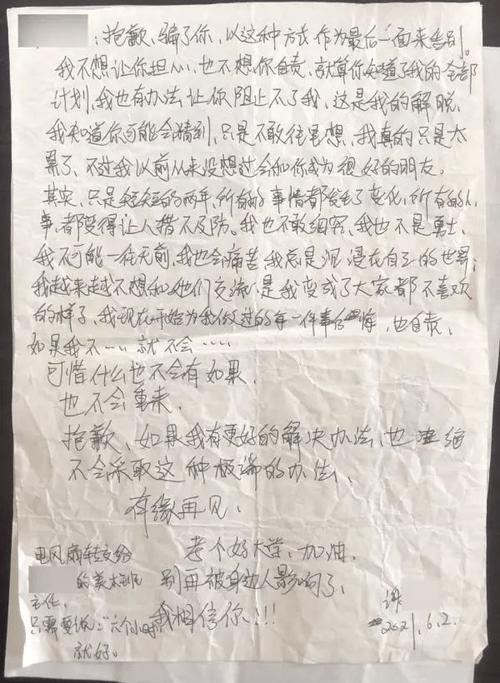 ：抱歉、骗了你，以这种方式作为最后一面来告别。
我不想让你担心，也不想你自责，就算你知道了我的全部
计划，我也有办法让你阻止不了我，这是我的解脱，
我知道你可能会猜到，只是不敢往里想，我真的只是太
累了、不过我以前从来没想过会和你成为很好的朋友。
其实，只是短短的两年，所有的事情都发生了变化，所有的人、
事，都变得让人措不及防。我也不敢细究，我也不是勇士、
我不可能一往无前，我也会痛苦，我总是沉浸在自己的世界；
我越来越不想和她们交流，是我变成了大家都不喜欢
的样子、我现在开始为我做过的每一件事后悔，也自责、
如果我不……就不会……
可惜什么也不会有如果，
也不会重来，
抱歉、如果我有更好的解决办法，也绝
不会采取这种极端的办法，
有缘再见、
电风扇转交给
考个好大学、加油，
的美术班
别再被身边人影响了、
主任，
只需要你 六个小时
我相信你！！！
就好。
2021.6.2.